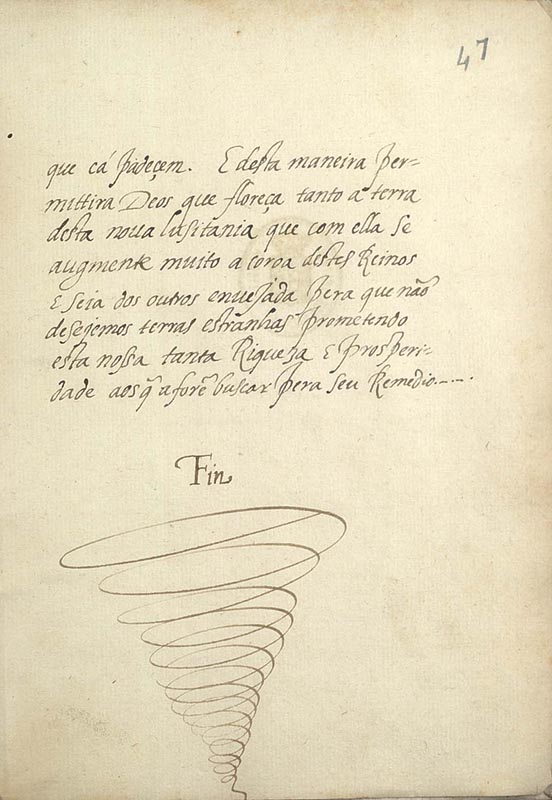 47
que cá padeçem. E desta maneira per-
mittira Deos que floreça tanto a terra
desta noua lusitania que com ella se
augmente muito a coroa destes Reinos
E seia dos outros enuejada pera que não
desejemos terras estranhas prometendo
esta nossa tanta Riqueza E prosperi-
dade aos q̃ a forẽ buscar pera seu Remedio.--.
Fin